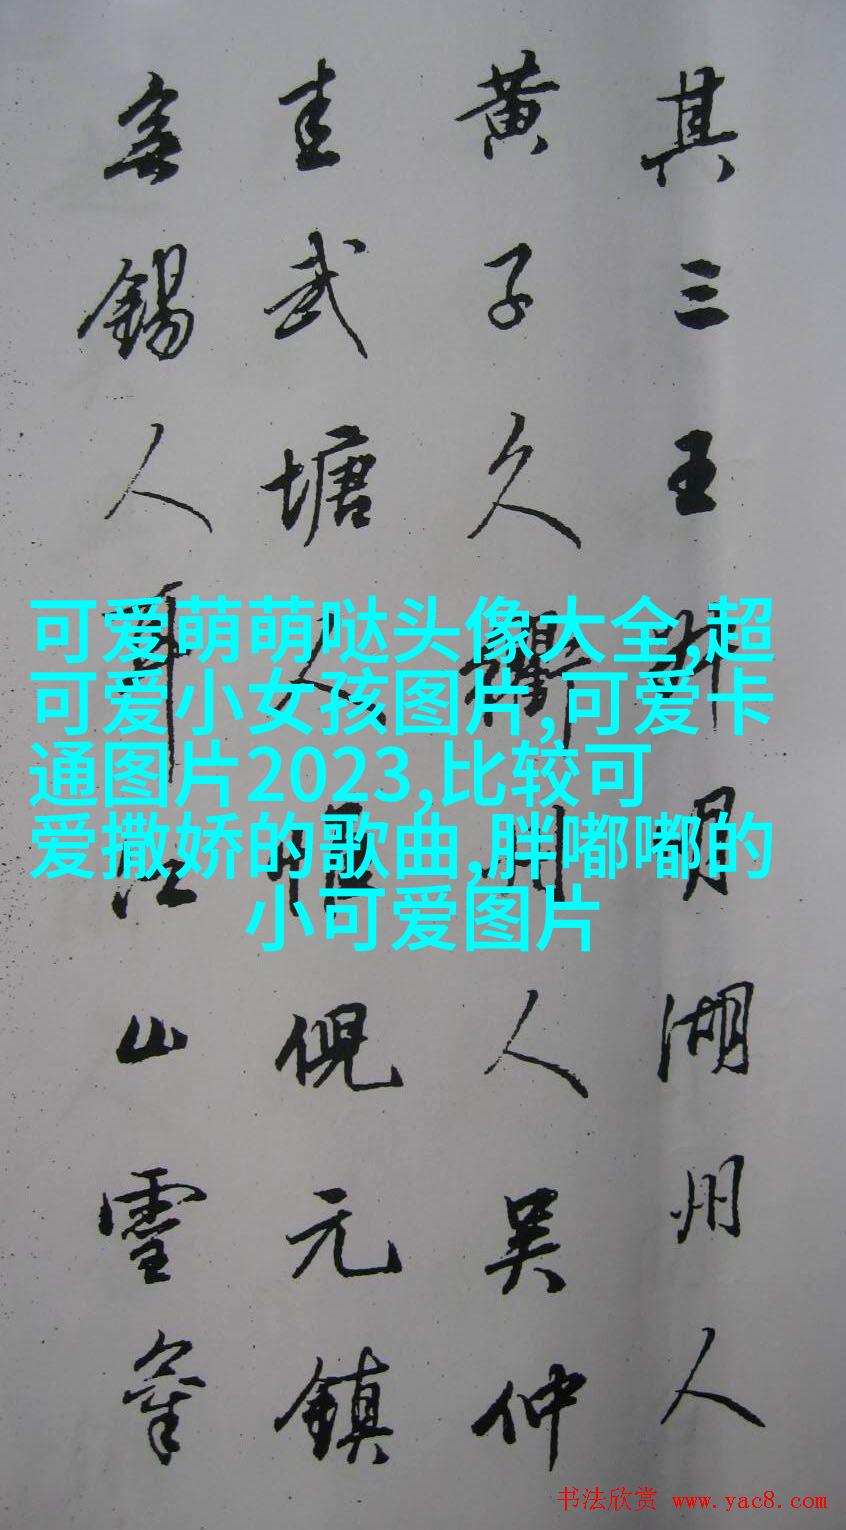 其三王叔明湖州人
黄子久衢州人吴仲
圭武塘人惟倪元鎮
無錫人耳江山靈氣
可爱萌萌哒头像大全,超
可爱小女孩图片,可爱卡
通图片2023,比较可
爱撒娇的歌曲,胖嘟嘟的
小可爱图片
书法欣赏 www.yac8.com